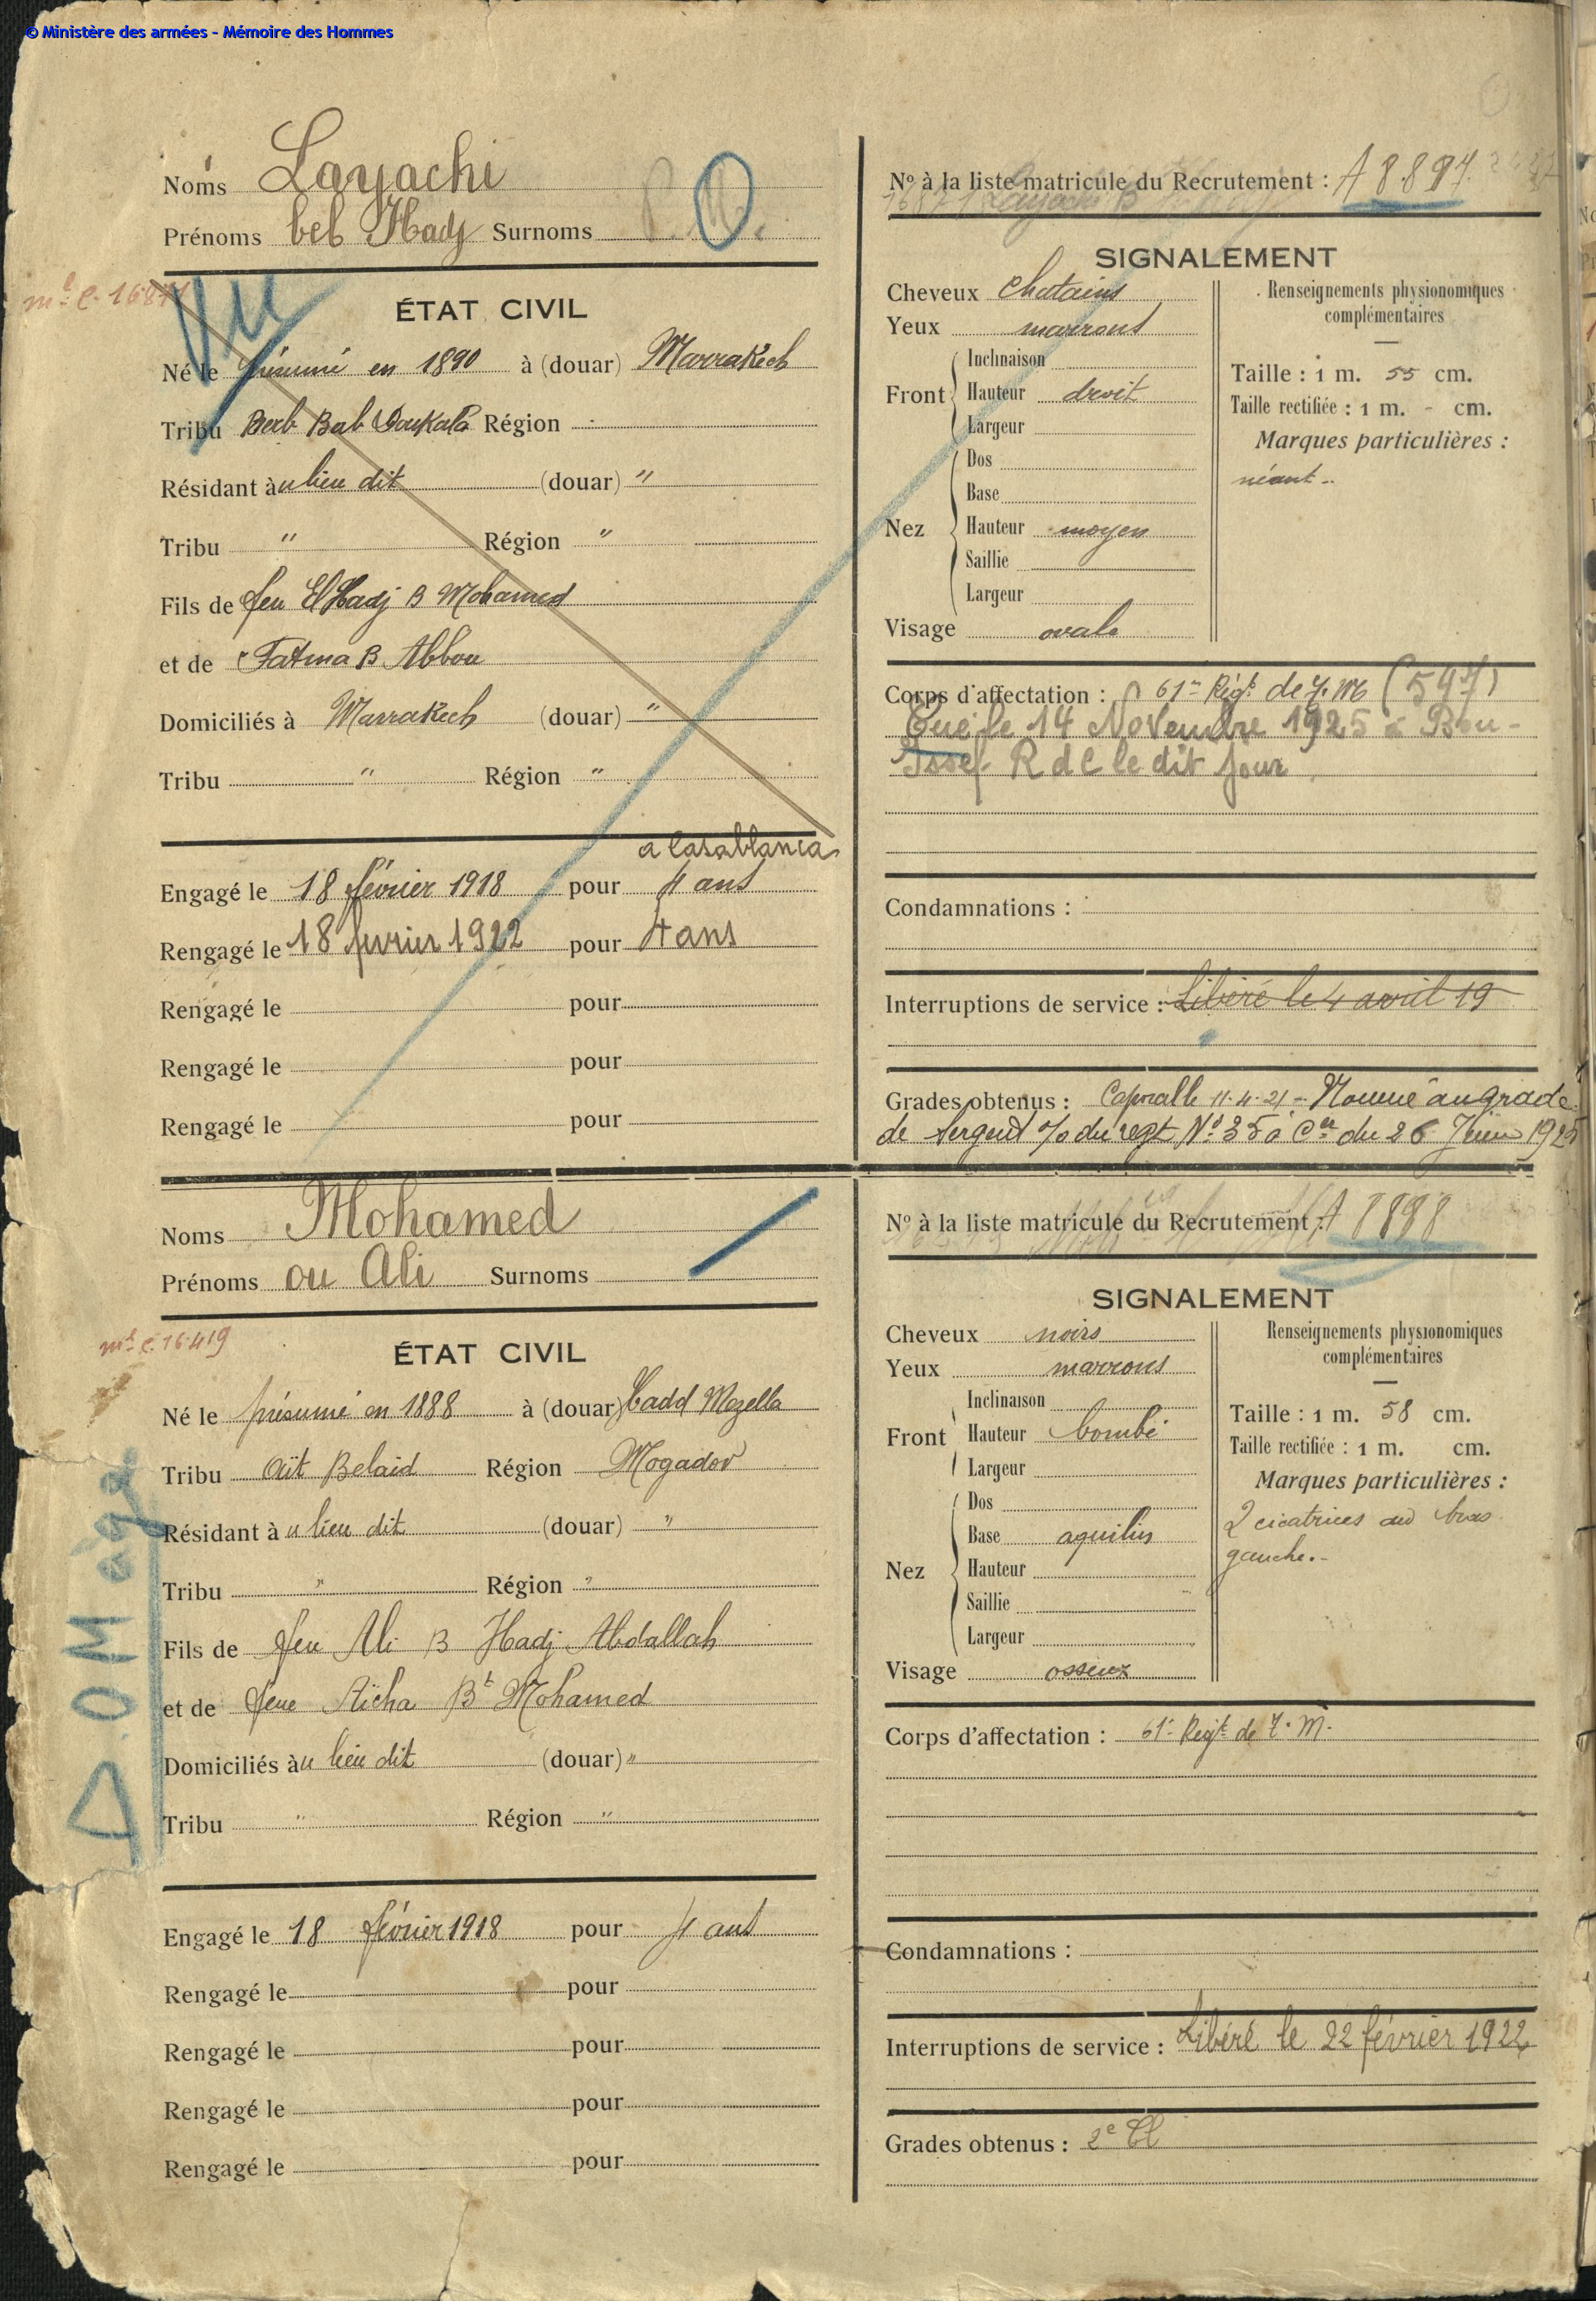 © Ministère des armées - Mémoire des Hommes
Noms Layachi
Prénoms bel Hadj Surnoms
ÉTAT CIVIL
Né le présumé en 1890 à (douar) Marrakech
Tribu Derb Bab Doukala Région
Résidant à u lieu dit (douar) "
Tribu " Région "
Fils de feu El Hadj B Mohamed
et de Fatma B Abbou
Domiciliés à Marrakech (douar) "
Tribu " Région "
a Casablanca
Engagé le 18 février 1918 pour 4 ans
Rengagé le 18 fevrier 1922 pour 4 ans
Rengagé le pour
Rengagé le pour
Rengagé le pour
Vu
O
Nº à la liste matricule du Recrutement : A 8.897
SIGNALEMENT
Cheveux chatains
Yeux marrons
Front
Inclinaison
Hauteur droit
Largeur
Nez
Dos
Base
Hauteur moyen
Saillie
Largeur
Visage ovale
Renseignements physionomiques
complémentaires
Taille : 1 m. 55 cm.
Taille rectifiée : 1 m. - cm.
Marques particulières :
néant -
Corps d'affectation : 61e Régt de T. M (547)
Tué le 14 Novembre 1925 à Bou-
Issef R d C le dit jour
Condamnations :
Interruptions de service : Libéré le 4 avril 19
Grades obtenus : Caporal le 11.4.21 - Nommé au grade
de sergent o/o du regt Nº 35 à cer du 26 Juin 1925
Noms Mohamed
Prénoms ou Ali Surnoms
mle c. 16419
ÉTAT CIVIL
Né le présumé en 1888 à (douar) Hadd Mezella
Tribu Aït Belaid Région Mogador
Résidant à u lieu dit (douar) "
Tribu " Région "
Fils de feu Ali B Hadj Abdallah
et de feue Aïcha Bt Mohamed
Domiciliés à u lieu dit (douar) "
Tribu " Région "
Engagé le 18 février 1918 pour 4 ans
Rengagé le pour
Rengagé le pour
Rengagé le pour
Rengagé le pour
Nº à la liste matricule du Recrutement : A 8898
SIGNALEMENT
Cheveux noirs
Yeux marrons
Front
Inclinaison
Hauteur bombé
Largeur
Nez
Dos
Base aquilin
Hauteur
Saillie
Largeur
Visage osseux
Renseignements physionomiques
complémentaires
Taille : 1 m. 58 cm.
Taille rectifiée : 1 m. cm.
Marques particulières :
2 cicatrices au bras
gauche.-
Corps d'affectation : 61e Régt de T. M.
Condamnations :
Interruptions de service : Libéré le 22 février 1922
Grades obtenus : 2e Cl